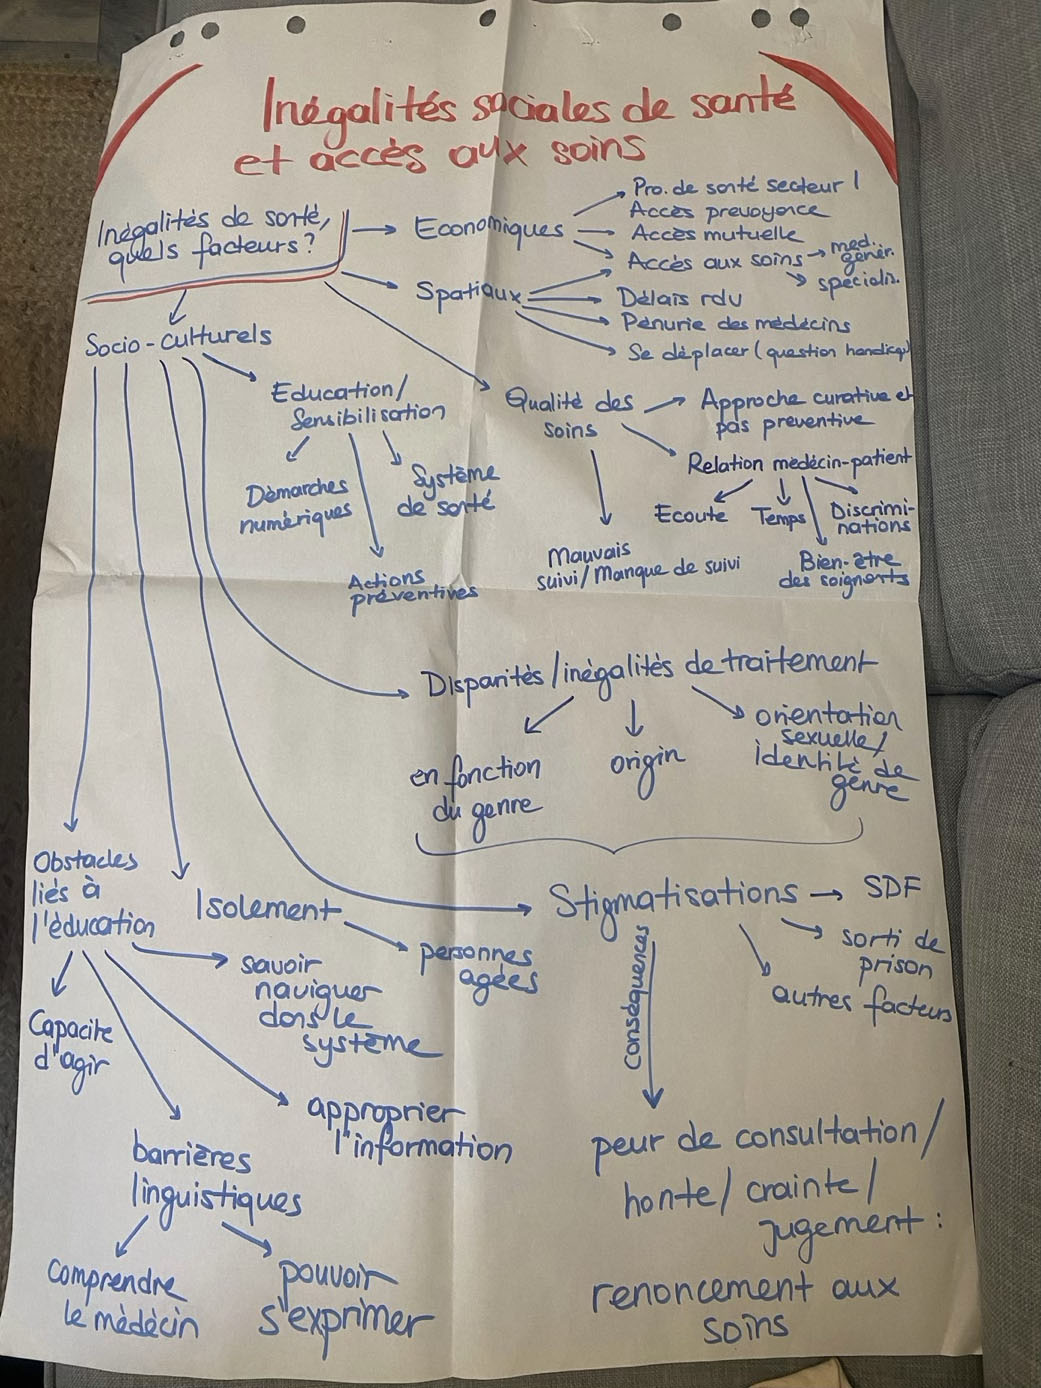 Inégalités sociales de santé
et accès aux soins
Inégalités de santé,
quels facteurs?
Economiques
Pro. de santé secteur 1
Accès prevoyance
Accès mutuelle
Accès aux soins
med.
génér.
spécialis.
Spatiaux
Délais rdv
Pénurie des médécins
Se déplacer (question handicap)
Socio-culturels
Education/
Sensibilisation
Démarches
numériques
Système
de santé
Actions
préventives
Qualité des
soins
Approche curative et
pas preventive
Relation médécin-patient
Ecoute
Temps
Discrimi-
nations
Bien-être
des soignants
Mauvais
suivi/Manque de suivi
Disparités/inégalités de traitement
en fonction
du genre
origin
orientation
sexuelle/
identité de
genre
Obstacles
liés à
l'éducation
Isolement
personnes
agées
Stigmatisations
SDF
sorti de
prison
autres facteurs
conséquences
savoir
naviguer
dans le
système
Capacité
d'agir
approprier
l'information
barrières
linguistiques
comprendre
le médécin
pouvoir
s'exprimer
peur de consultation/
honte/ crainte/
jugement:
renoncement aux
soins